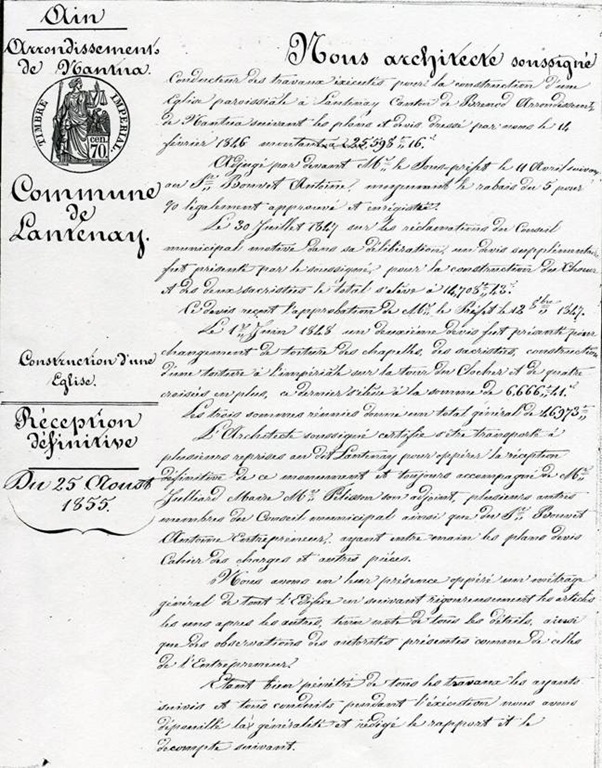 Ain
Arrondissement
de Nantua.
TIMBRE IMPERIAL.
70 cen.
Commune
de
Lantenay.
Construction d'une
Eglise.
Réception
définitive
Du 25 Aoust
1855.
Nous architecte soussigné
Conducteur des travaux exécutés pour la construction d'une
Eglise paroissiale à Lantenay Canton de Brenod Arrondissement
de Nantua suivant les plans et devis dressé par nous le 14
février 1846 montant à 25,598 f 16 c
Adjugé par devant Mr. le Sous-préfet le 11 Avril suivant
au Sr. Bonnet Antoine, moyennant le rabais du 5 pour
% légalement approuvé et enrégistré.
Le 30 Juillet 1847 sur les réclamations du Conseil
municipal motivé dans sa délibération, un devis supplémentaire
fut présenté par le soussigné, pour la construction du Choeur
et des deux sacristies le total s'élève à 14,708 f 43 c
Ce devis reçut l'approbation de Mr. le Préfet le 12 8bre 1847.
Le 1er Juin 1848 un deuxième devis fut présenté pour
changement de toiture des chapelles, des sacristies, construction
d'une toiture à l'impériale sur la tour du Clocher et de quatre
croisées en plus, ce dernier s'élève à la somme de 6,666 f 41 c
Les trois sommes réunies donne un total général de 46973 f
L'Architecte soussigné certifie s'être transporté à
plusieurs reprises au dit Lantenay pour oppérer la réception
définitive de ce monument et toujours accompagné de Mr.
Julliard Maire Mr. Pelisson son adjoint, plusieurs autres
membres du Conseil municipal ainsi que du Sr. Bonnet
Antoine Entrepreneur, ayant entre main les plans devis
Cahier des charges et autres pièces.
Nous avons en leur présence oppéré un métrage
général de tout l'Edifice en suivant rigoureusement les articles
les uns après les autres, tenu note de tous les détails, ainsi
que des observations des autorités présentes comme de celles
de l'Entrepreneur.
Etant bien pénétré de tous les travaux les ayants
suivis et tous conduits pendant l'éxécution nous avons
dépouillé la généralité et rédigé le rapport et le
décompte suivant.